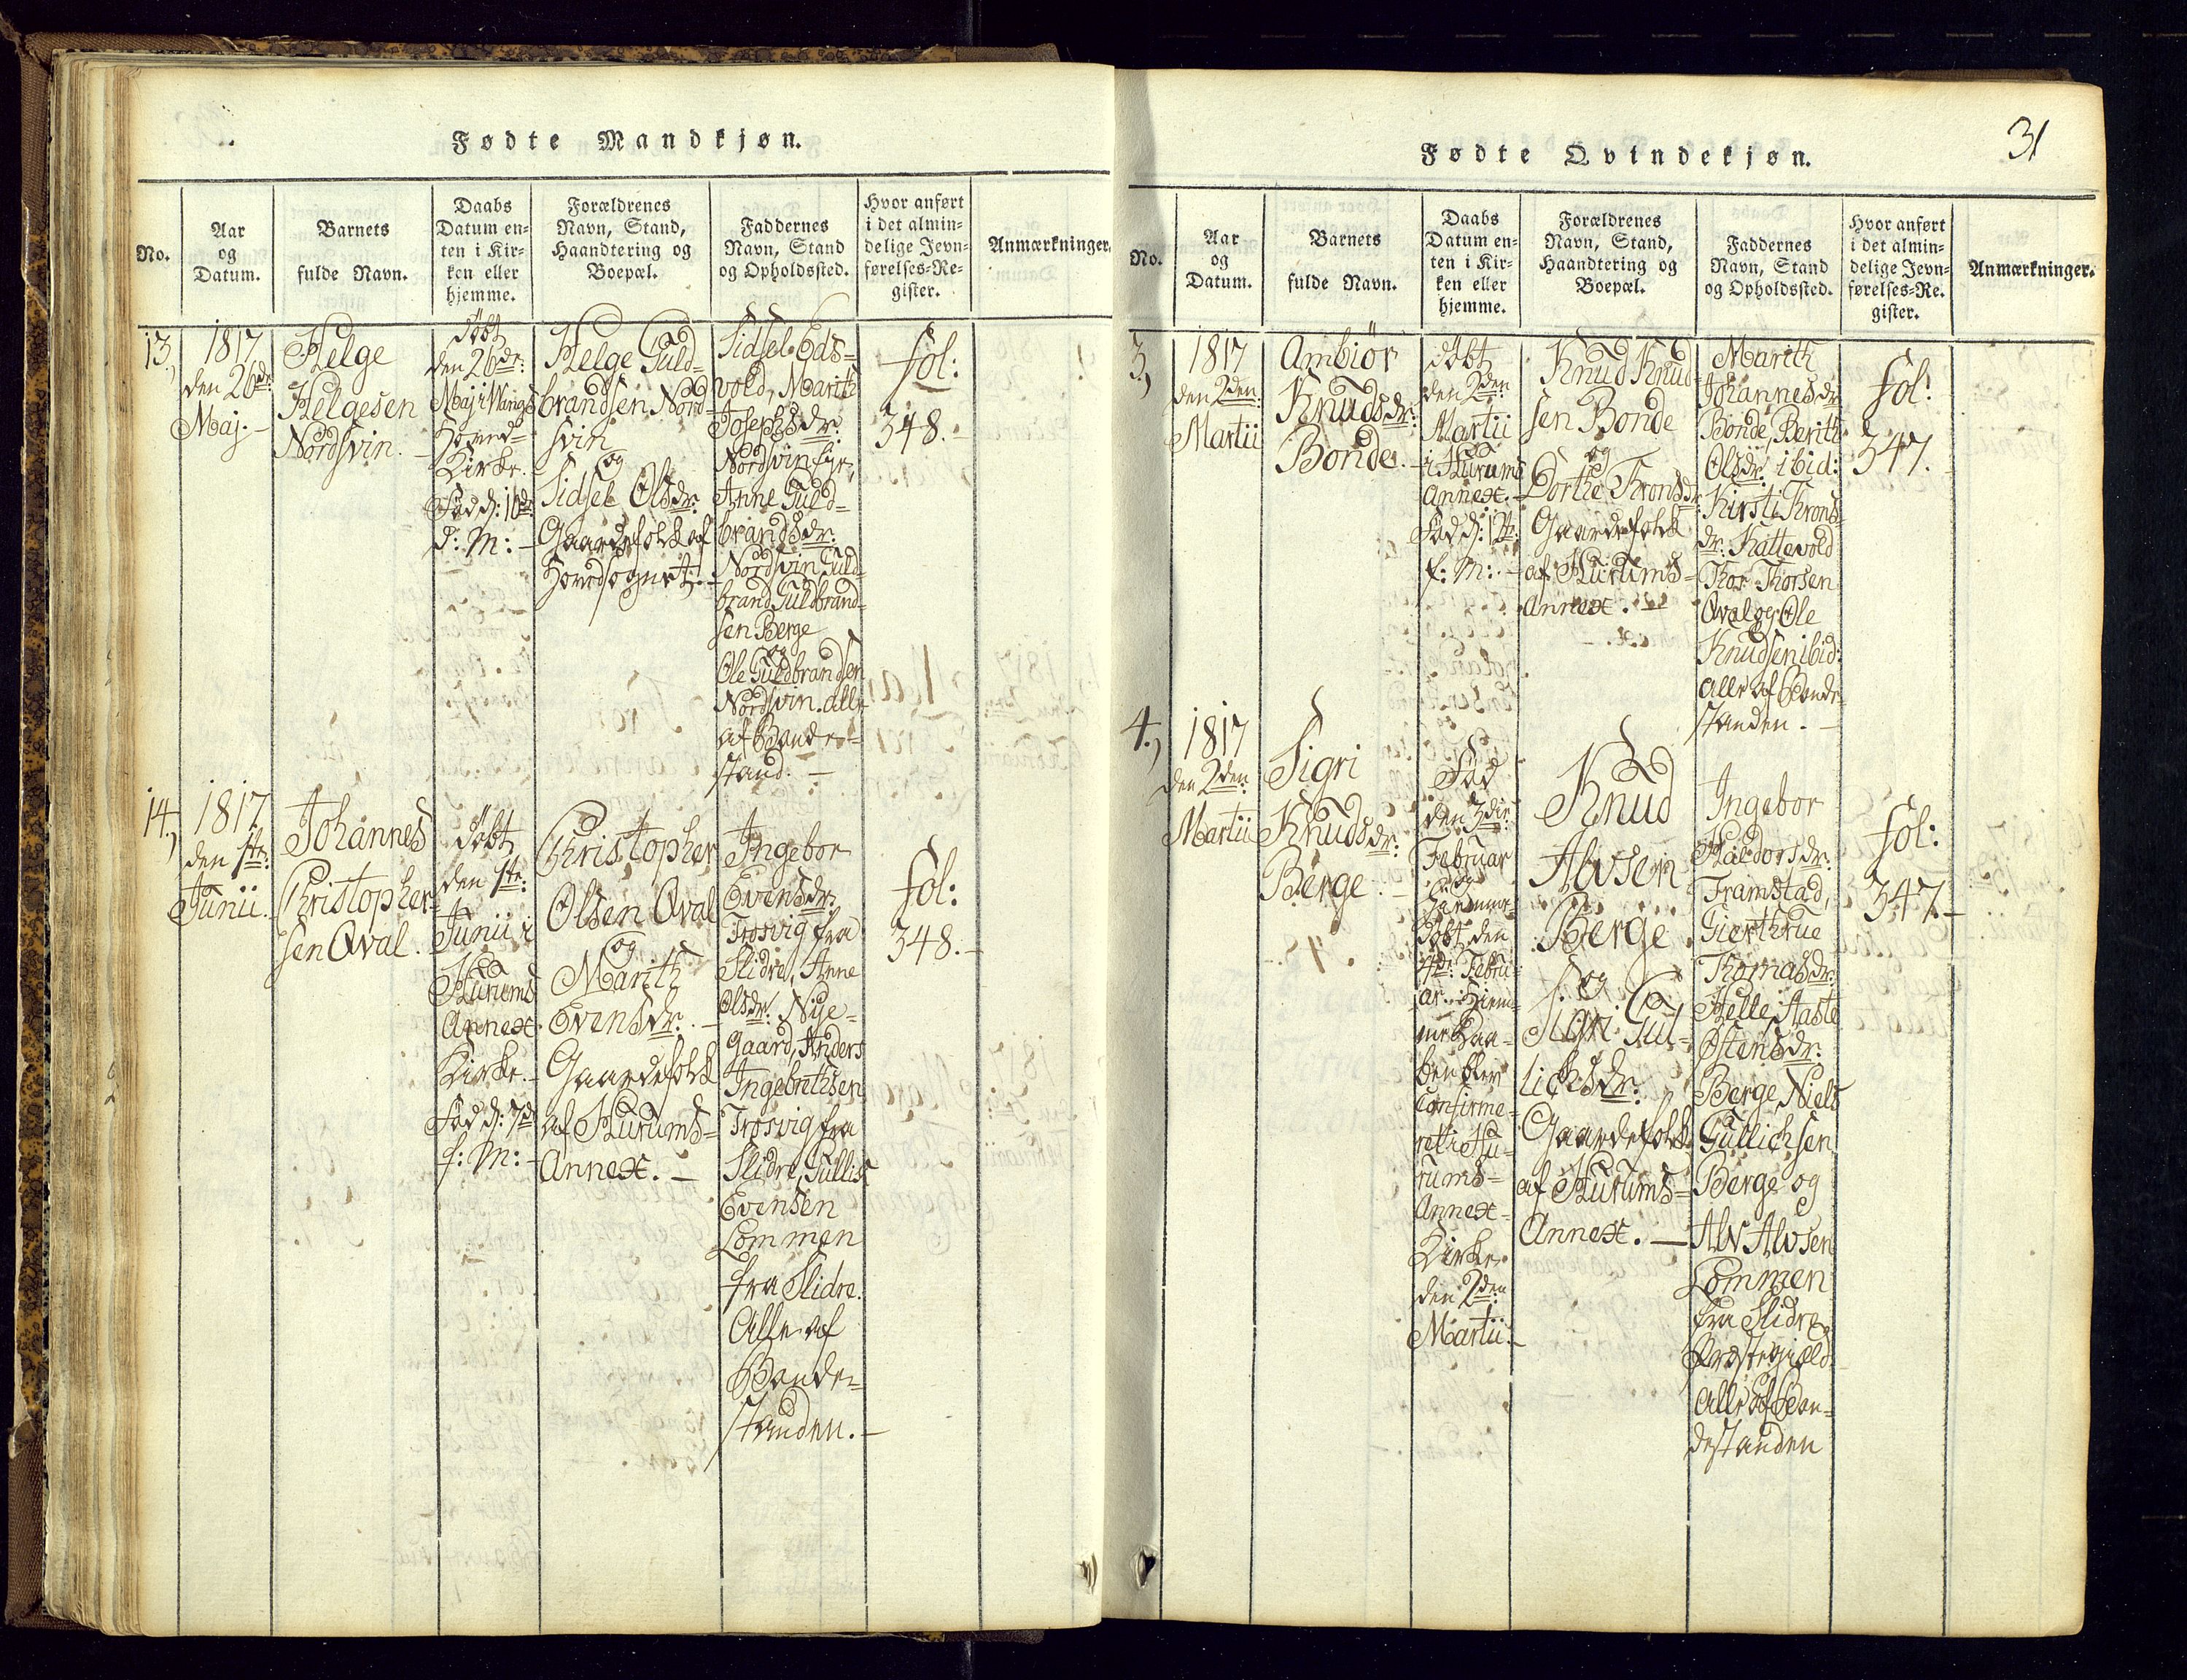 Fødte Mandkjøn.
No.
Aar
og
Datum.
Barnets
fulde Navn.
Daabs
Datum en-
ten i Kir-
ken eller
hjemme.
Forældrenes
Navn, Stand,
Haandtering og
Boepæl.
Faddernes
Navn, Stand
og Opholdssted.
Hvor anført
i det almin-
delige Jevn-
førelses-Re-
gister.
Anmærkninger.
13.,
1817
den 26de
Maj.-
Helge
Helgesen
Nordsvin.
døbt
den 26de:
Maj i Vangs
Hoved-
Kirke.
Fød d: 16de
d: M: -
Helge Guld-
brandsen Nord-
svin
og
Sidsel Olsdr:
Gaardefolk af
Hovedsognet. -
Sidsel Eds-
vold, Marith
Josephsdr:
Nordsvin
Anne Guld-
brandsdr:
Nordsvin Guld-
brand Guldbrand-
sen Berge
og
Ole Guldbrandsen
Nordsvin. alle
af Bonde-
stand. -
fol:
348.-
14.,
1817
den 1ste:
Junii.
Johannes
Christopher-
sen Qval.
døbt
den 1ste:
Junii i
Hurums
Annex
Kirke.-
Fød d: 7de
f: M: -
Christopher
Olsen Qval
og
Marith
Evensdr: -
Gaardefolk
af Hurums-
Annex. -
Ingebor
Evensdr:
Trosvig fra
Slidre, Anne
Olsdr: Nye-
gaard, Anders
Ingebrethsen
Trosvig fra
Slidre, Gullik
Evensen
Lommen
fra Slidre.
Alle af
Bonde-
standen. -
fol:
348.-
31
Fødte Qvindekjøn.
No.
Aar
og
Datum.
Barnets
fulde Navn.
Daabs
Datum en-
ten i Kir-
ken eller
hjemme.
Forældrenes
Navn, Stand,
Haandtering og
Boepæl.
Faddernes
Navn, Stand
og Opholdssted.
Hvor anført
i det almin-
delige Jevn-
førelses-Re-
gister.
Anmærkninger.
3.,
1817
den 2den
Martii
Ambiør
Knudsdr:
Bonde.
døbt
den 2den
Martii
i Hurums
Annex.-
Fød d: 1ste:
f: M: -
Knud Knud-
sen Bonde
og
Dorthe Thronsdr:
Gaardefolk
af Hurums-
Annex. -
Marith
Johannesdr:
Bonde, Berith
Olsdr: ibid:
Kirsti Throns-
dr: Kattevold
Thor Thorsen
Qval og Ole
Knudsen ibid:
alle af Bonde-
standen. -
fol:
347.
4.,
1817
den 2den
Martii
Sigri
Knudsdr:
Berge. -
Fød
den 3die:
Februar
og
hiemme-
døbt den
4de: Febru-
ar. Hiem-
medaa-
ben blev
confirme-
ret i Hu-
rums-
Annex-
Kirke
den 2den
Martii.-
Knud
Alvsen
Berge
og
Sigri Gul-
lichsdr:
Gaardefolk
af Hurums-
Annex. -
Ingebor
Haldorsdr:
Framstad,
Gierthrue
Thomasdr:
Helle, Aaste
Østensdr:
Berge, Niels
Gullichsen
Berge og
Alv Alvsen
Lommen
fra Slidre
Præstegield.
Alle af Bon-
destanden
fol:
347.-